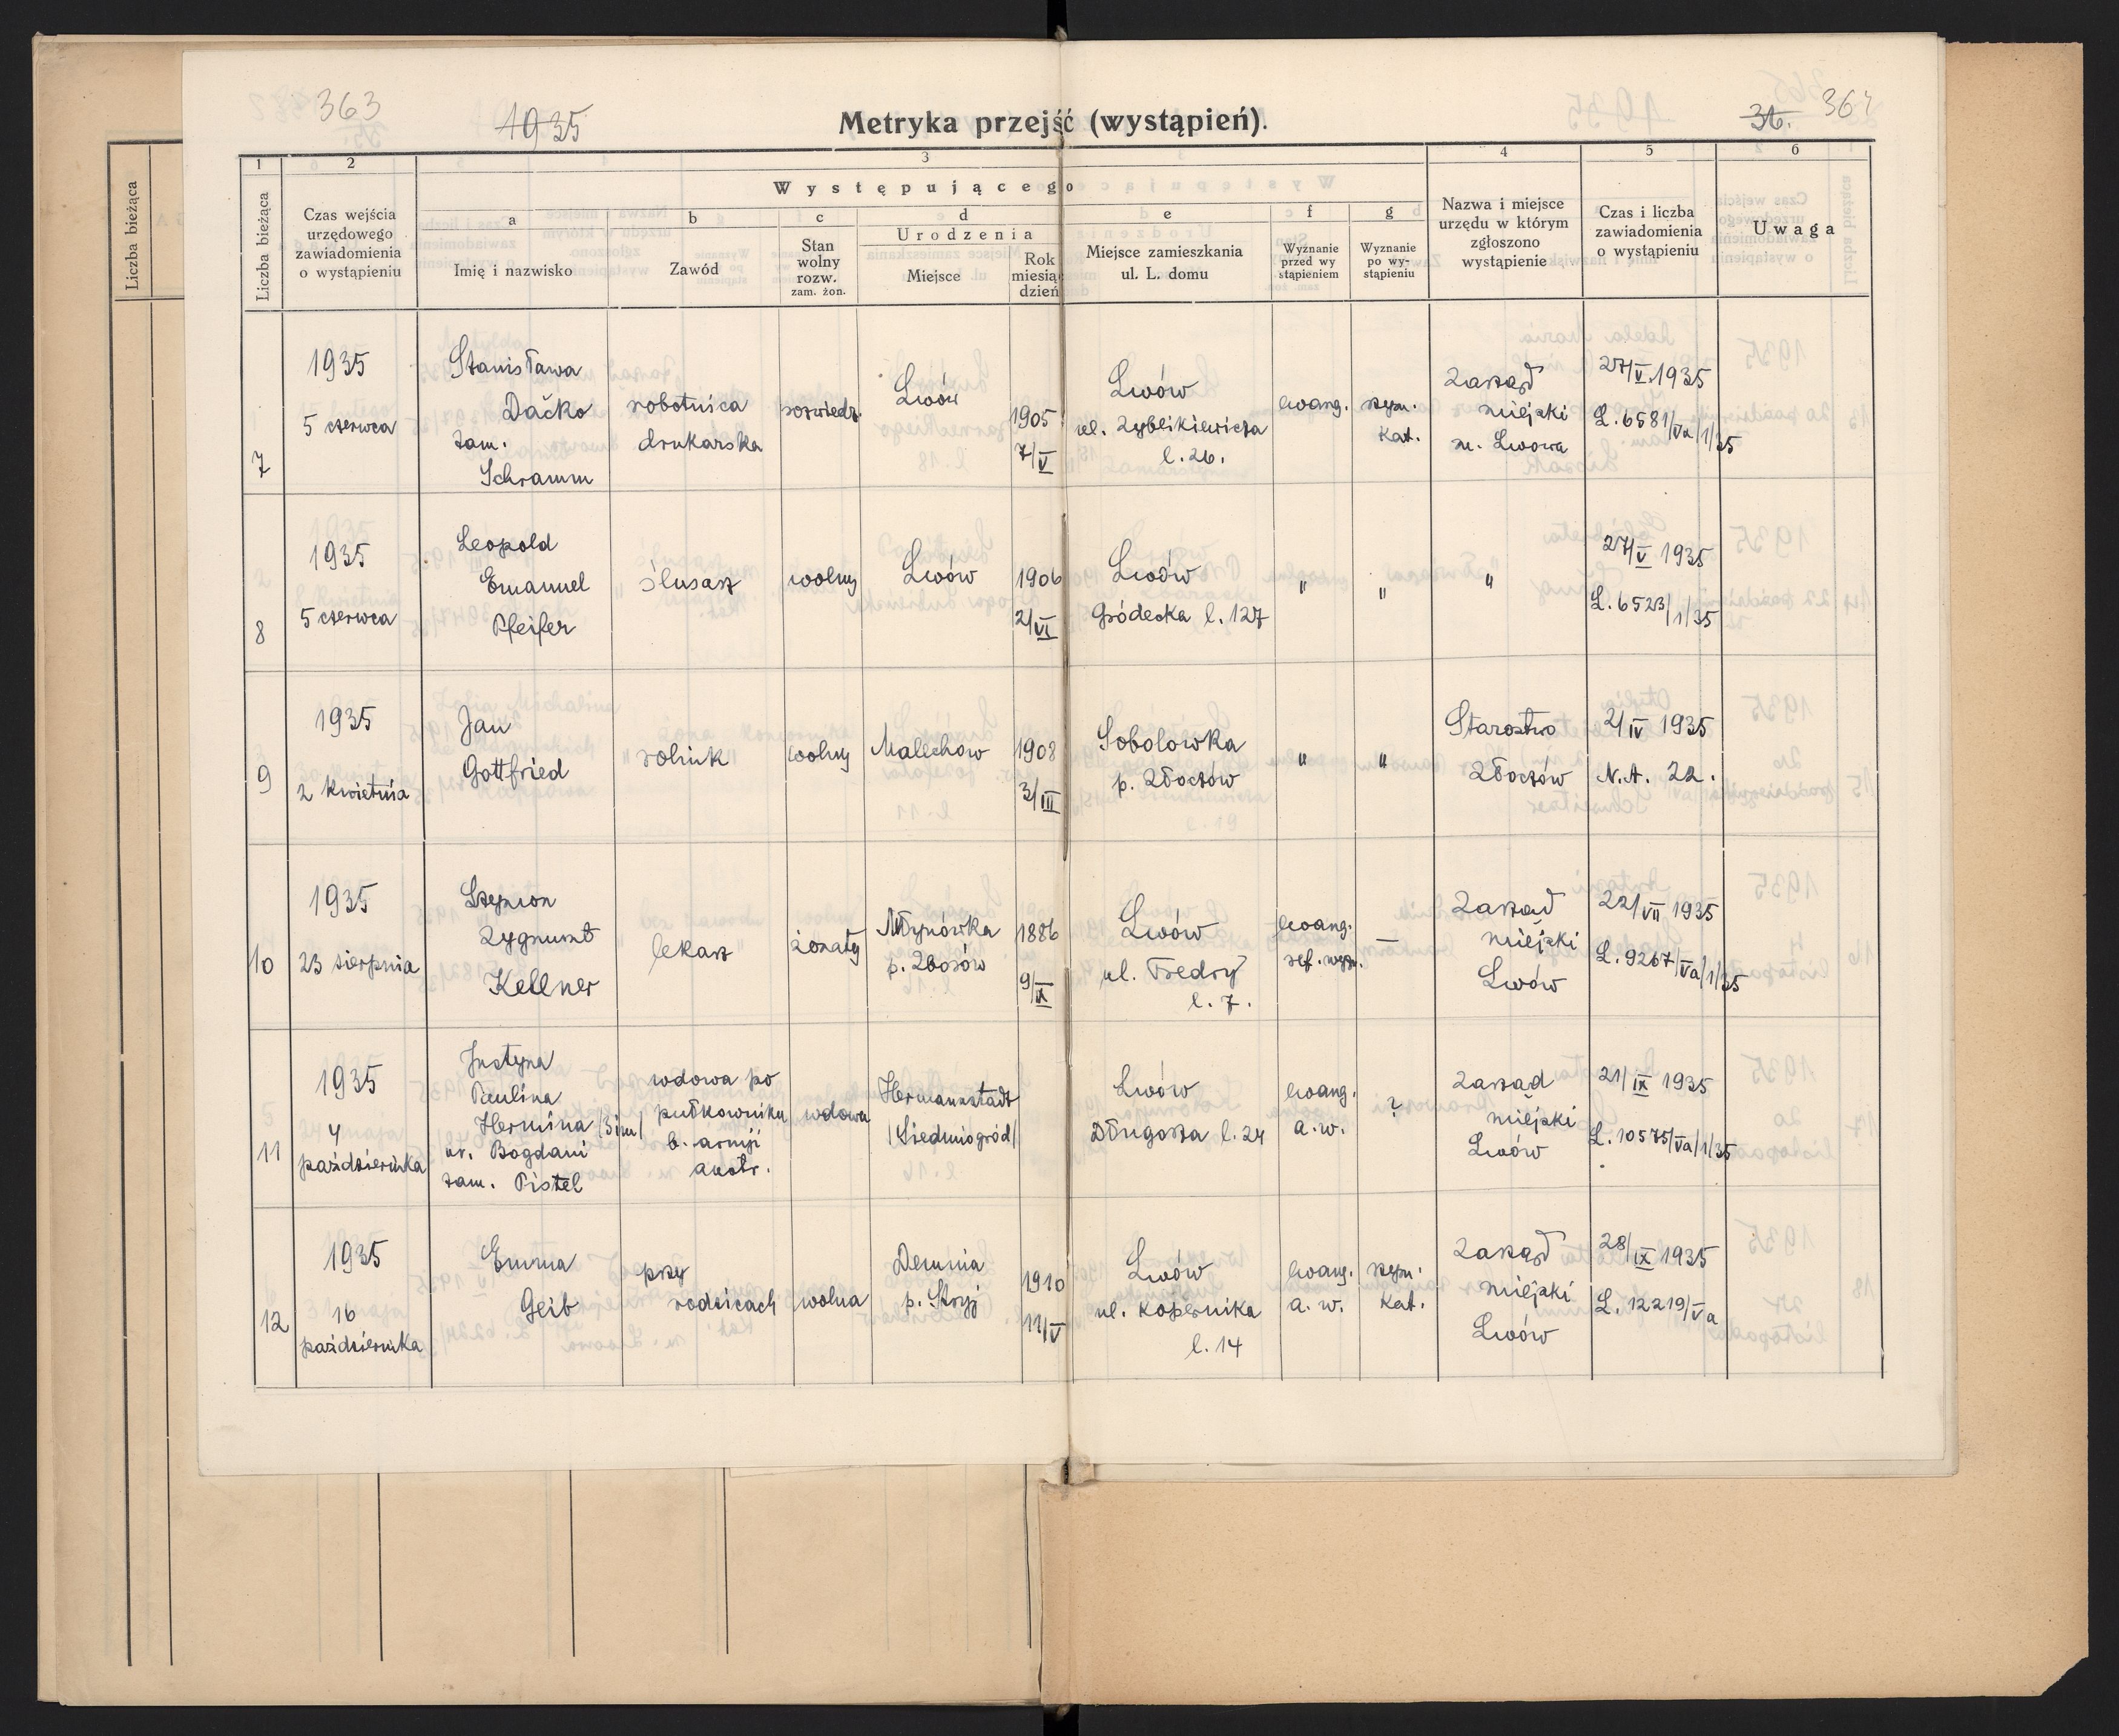 363
1935
Metryka przejść (wystąpień).
36.
364
1
2
3
4
5
6
Liczba bieżąca
Liczba bieżąca
Czas wejścia
urzędowego
zawiadomienia
o wystąpieniu
Występującego
a
Imię i nazwisko
b
Zawód
c
Stan
wolny
rozw.
zam. żon.
d
Urodzenia
Miejsce
Rok
miesiąc
dzień
e
Miejsce zamieszkania
ul. L. domu
f
Wyznanie
przed wy
stąpieniem
g
Wyznanie
po wy-
stąpieniu
Nazwa i miejsce
urzędu w którym
zgłoszono
wystąpienie
Czas i liczba
zawiadomienia
o wystąpieniu
Uwaga
7
1935
5 czerwca
Stanisława
Dačko
zam.
Schramm
robotnica
drukarska
rozwiedz.
Lwów
1905
7/V
Lwów
ul. Zyblikiewicza
l. 26.
ewang.
rzym.
kat.
Zarząd
miejski
m. Lwowa
27/V 1935
L. 6581/Va/1/35
8
1935
5 czerwca
Leopold
Emanuel
Pfeifer
ślusarz
wolny
Lwów
1906
2/VI
Lwów
Gródecka l. 127
"
"
"
27/V 1935
L. 6523/1/35
9
1935
2 kwietnia
Jan
Gottfried
rolnik
wolny
Malechów
1908
3/III
Sobolowka
p. Złoczów
"
"
Starostwo
Złoczów
2/IV 1935
N.A. 22.
10
1935
23 sierpnia
Szymon
Zygmunt
Kellner
lekarz
żonaty
Młynówka
p. Zborów
1886
9/IX
Lwów
ul. Fredry
l. 7.
ewang.
ref. wyzn.
—
Zarząd
miejski
Lwów
22/VII 1935
L. 9267/Va/1/35
11
1935
4
października
Justyna
Paulina
Hermina /3 im/
ur. Bogdani
zam. Pistel
wdowa po
pułkowniku
b. armji
austr.
wdowa
Hermannstadt
/Siedmiogród/
Lwów
Długosza l. 24
ewang.
a. w.
?
Zarząd
miejski
Lwów
21/IX 1935
L. 10575/Va/1/35
12
1935
16
października
Emma
Geib
przy
rodzicach
wolna
Demnia
p. Stryj
1910
11/V
Lwów
ul. Kopernika
l. 14
ewang.
a. w.
rzym.
kat.
Zarząd
miejski
Lwów
28/IX 1935
L. 12219/Va